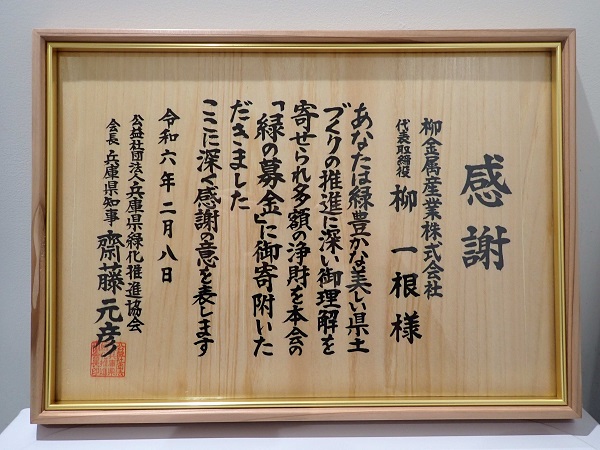 感謝
柳金属産業株式会社
代表取締役 柳一根様
あなたは緑豊かな美しい県土
づくりの推進に深い御理解を
寄せられ多額の浄財を本会の
「緑の募金」に御寄附いた
だきました
ここに深く感謝の意を表します
令和六年二月八日
公益社団法人兵庫県緑化推進協会
会長 兵庫県知事 齋藤元彦